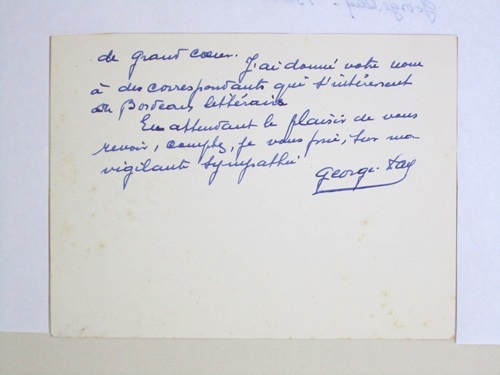 de grand cœur. J'ai donné votre nom
à des correspondants qui s'intéressent
au Bordeaux littéraire
En attendant le plaisir de vous
revoir, comptez, je vous prie, sur ma
vigilante sympathie
George Day